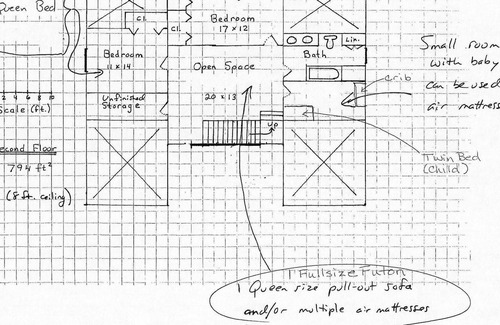 Queen Bed
Cl.
Cl.
Bedroom
17 x 12
Lin.
Bath
Bedroom
11 x 14
Open Space
20 x 13
Unfinished
Storage
up
Scale (ft.)
Second Floor
794 ft²
(8 ft. ceiling)
Small room
with baby
crib
can be used
air mattress
Twin Bed
(child)
1 Fullsize Futon
1 Queen size pull-out sofa
and/or multiple air mattresses